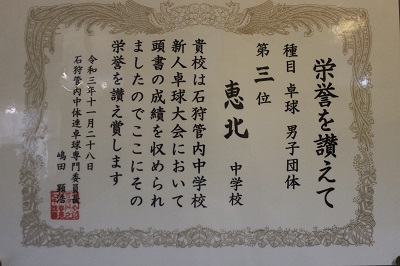 栄誉を讃えて
種目 卓球 男子団体
第三位
恵北 中学校
貴校は石狩管内中学校
新人卓球大会において
頭書の成績を収められ
ましたのでここにその
栄誉を讃え賞します
令和三年十一月二十八日
石狩管内中体連卓球専門委員長
嶋田 顕浩